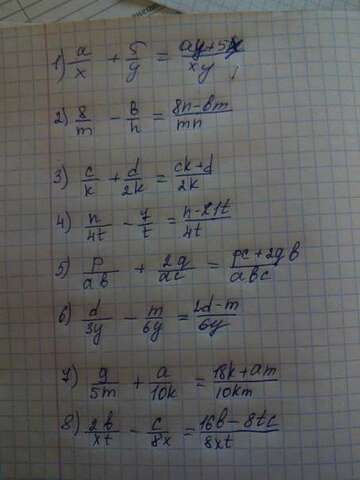 1) a/x + 5/y = (ay+5x)/xy
2) 8/m - b/n = (8n-bm)/mn
3) c/k + d/2k = (ck+d)/2k
4) n/4t - 7/t = (n-21t)/4t
5) p/ab + 2g/ac = (pc+2gb)/abc
6) d/3y - m/6y = (2d-m)/6y
7) g/5m + a/10k = (18k+am)/10km
8) 2b/xt - c/8x = (16b-8tc)/8xt